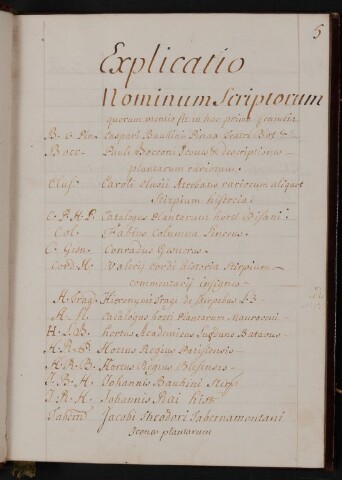 5
Explicatio
Nominum Scriptorum
quorum mentio fit in hac prima
B. C. Pin. Caspari Bauhini Pinax Teatri Bot.
Bocc. Pauli Bocconi Icones & descriptiones
plantarum rariorum.
Clus. Caroli Clusii Atrebatis rariorum aliquot
Stirpium historia.
C. P. H. P. Catalogus Plantarum horti Pisani.
Col. Fabius Columna Lincius.
C. Gesn. Conradus Gesnerus.
Cord. H. Valerij Cordi historia Stirpium
commentarij insignis
H. Trag. Hieronymi Tragi de stirpibus L. 3
H. M. Catalogus horti Plantarum Mauroceni
H. L. B. hortus Academicus Lugduno Batavus
H. R. P. Hortus Regius Parisiensis
H. R. B. Hortus Regius Blesensis
I. B. H. Iohannis Bauhini
I. R. H. Iohannis Rai hist
Tabern Iacobi Theodori Tabernamontani
Icones plantarum